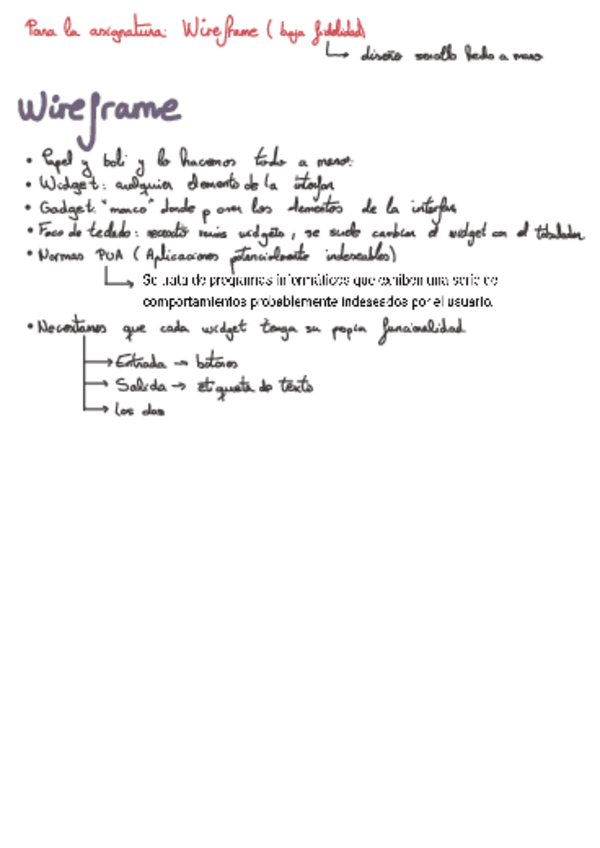 Para la asignatura: Wireframe (baja fidelidad)
↳ diseño sencillo hecho a mano
Wireframe
• Papel y boli y lo hacemos todo a mano.
• Widget: cualquier elemento de la interfaz
• Gadget: "marco" donde poner los elementos de la interfaz
• Foco de teclado: widgets, se suele cambiar el widget con el tabulador
• Normas PUA (Aplicaciones potencialmente indeseables)
↳ Se trata de programas informáticos que exhiben una serie de
comportamientos probablemente indeseados por el usuario.
• Necesitamos que cada widget tenga su propia funcionalidad
→ Entrada → botones
→ Salida → etiqueta de texto
→ Los dos